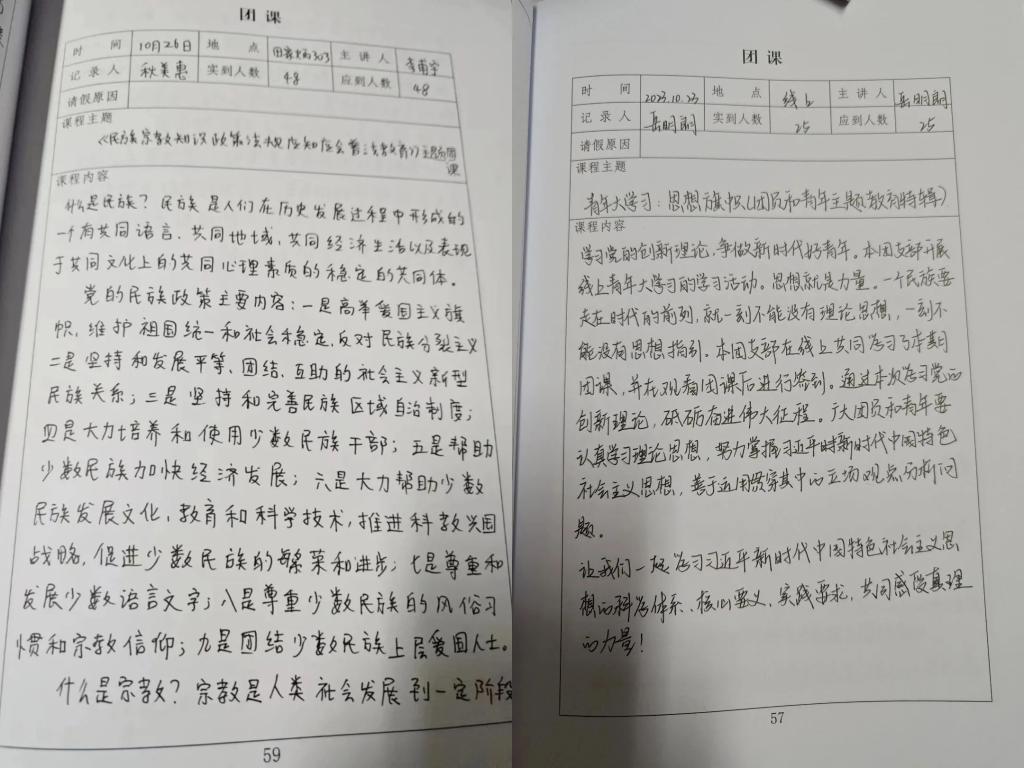 团 课
时 间 10月26日 地 点 303 主 讲 人
记 录 人 秋美惠 实到人数 48 应到人数 48
请假原因
课程主题
《民族宗教知识政策法规应知应会普法教育》主题团
课
课程内容
什么是民族？民族是人们在历史发展过程中形成的
一个有共同语言、共同地域、共同经济生活以及表现
于共同文化上的共同心理素质的稳定的共同体。
党的民族政策主要内容：一是高举爱国主义旗
帜，维护祖国统一和社会稳定，反对民族分裂主义
二是坚持和发展平等、团结、互助的社会主义新型
民族关系；三是坚持和完善民族区域自治制度；
四是大力培养和使用少数民族干部；五是帮助
少数民族加快经济发展；六是大力帮助少数
民族发展文化、教育和科学技术，推进科教兴国
战略，促进少数民族的繁荣和进步；七是尊重和
发展少数语言文字；八是尊重少数民族的风俗习
惯和宗教信仰；九是团结少数民族上层爱国人士。
什么是宗教？宗教是人类社会发展到一定阶段
59
团 课
时 间 2023.10.23 地 点 线上 主 讲 人 岳明朗
记 录 人 岳明朗 实到人数 25 应到人数 25
请假原因
课程主题
青年大学习：思想旗帜（团员和青年主题教育特辑）
课程内容
学习党的创新理论，争做新时代好青年。本团支部开展
线上青年大学习的学习活动。思想就是力量。一个民族要
走在时代的前列，就一刻不能没有理论思想，一刻不
能没有思想指引。本团支部在线上共同学习了本期
团课，并在观看团课后进行签到。通过本次学习党的
创新理论，砥砺奋进伟大征程。广大团员和青年要
认真学习理论思想，努力掌握习近平时新时代中国特色
社会主义思想，善于运用贯穿其中的立场观点分析问
题。
让我们一起学习习近平新时代中国特色社会主义思
想的科学体系、核心要义、实践要求，共同感受真理
的力量！
57